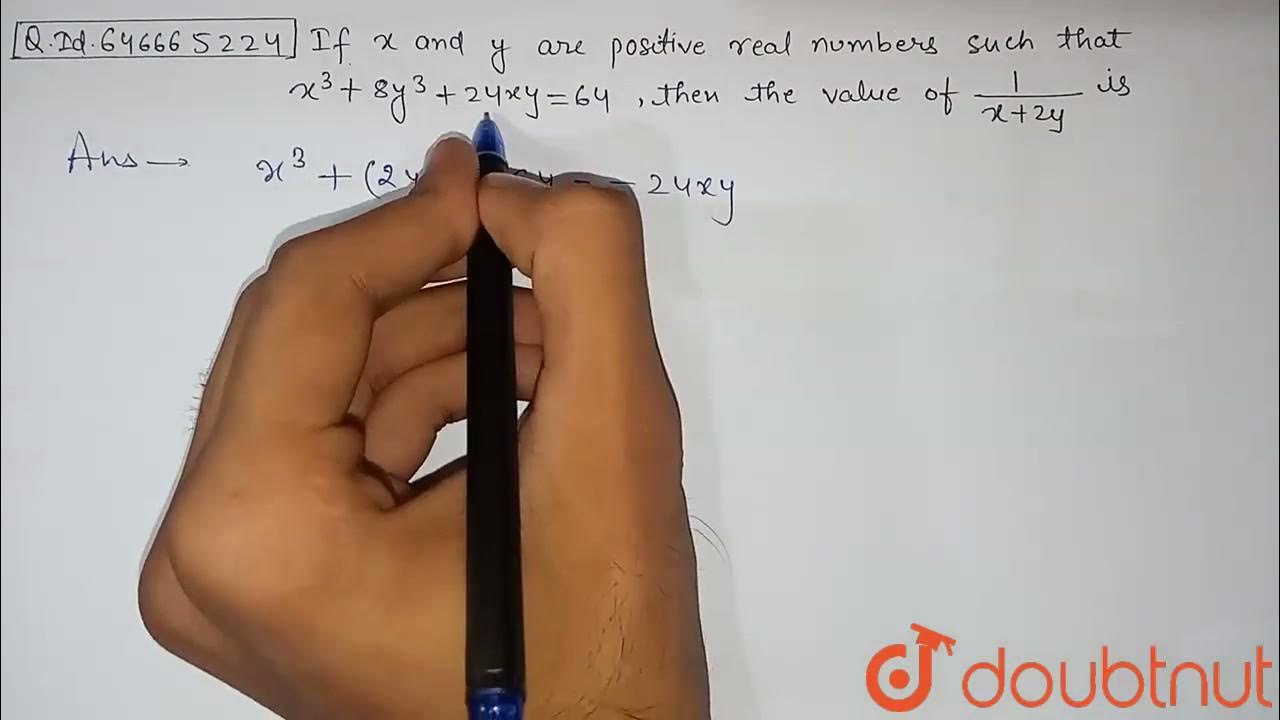 Q.Id.646665224 If x and y are positive real numbers such that
x³ + 8y³ + 24xy = 64 , then the value of 1/(x+2y) is
Ans → x³ + (2y - 24xy
doubtnut